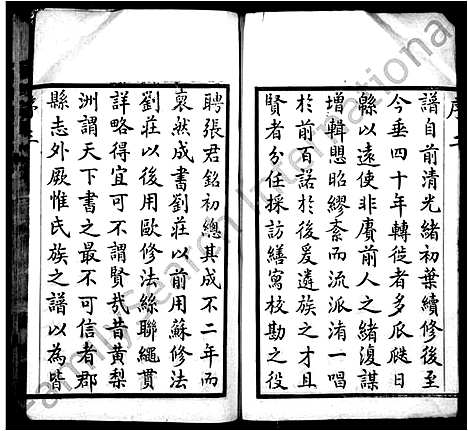 序二
譜自前清光緒初葉續修後至
今垂四十年轉徙者多瓜瓞日
緜以遠使非賡前人之緒復謀
增輯愳昭繆紊而流派淆一唱
於前百諾於後爰遴族之才且
賢者分任採訪繕寫校勘之役
聘張君銘初總其成不二年而
裒然成書劉莊以前用蘇修法
劉莊以後用歐修法絲聯繩貫
詳略得宜可不謂賢哉昔黄梨
洲謂天下書之最不可信者郡
縣志外厥惟氏族之譜以為皆
序三
FamilySearch International